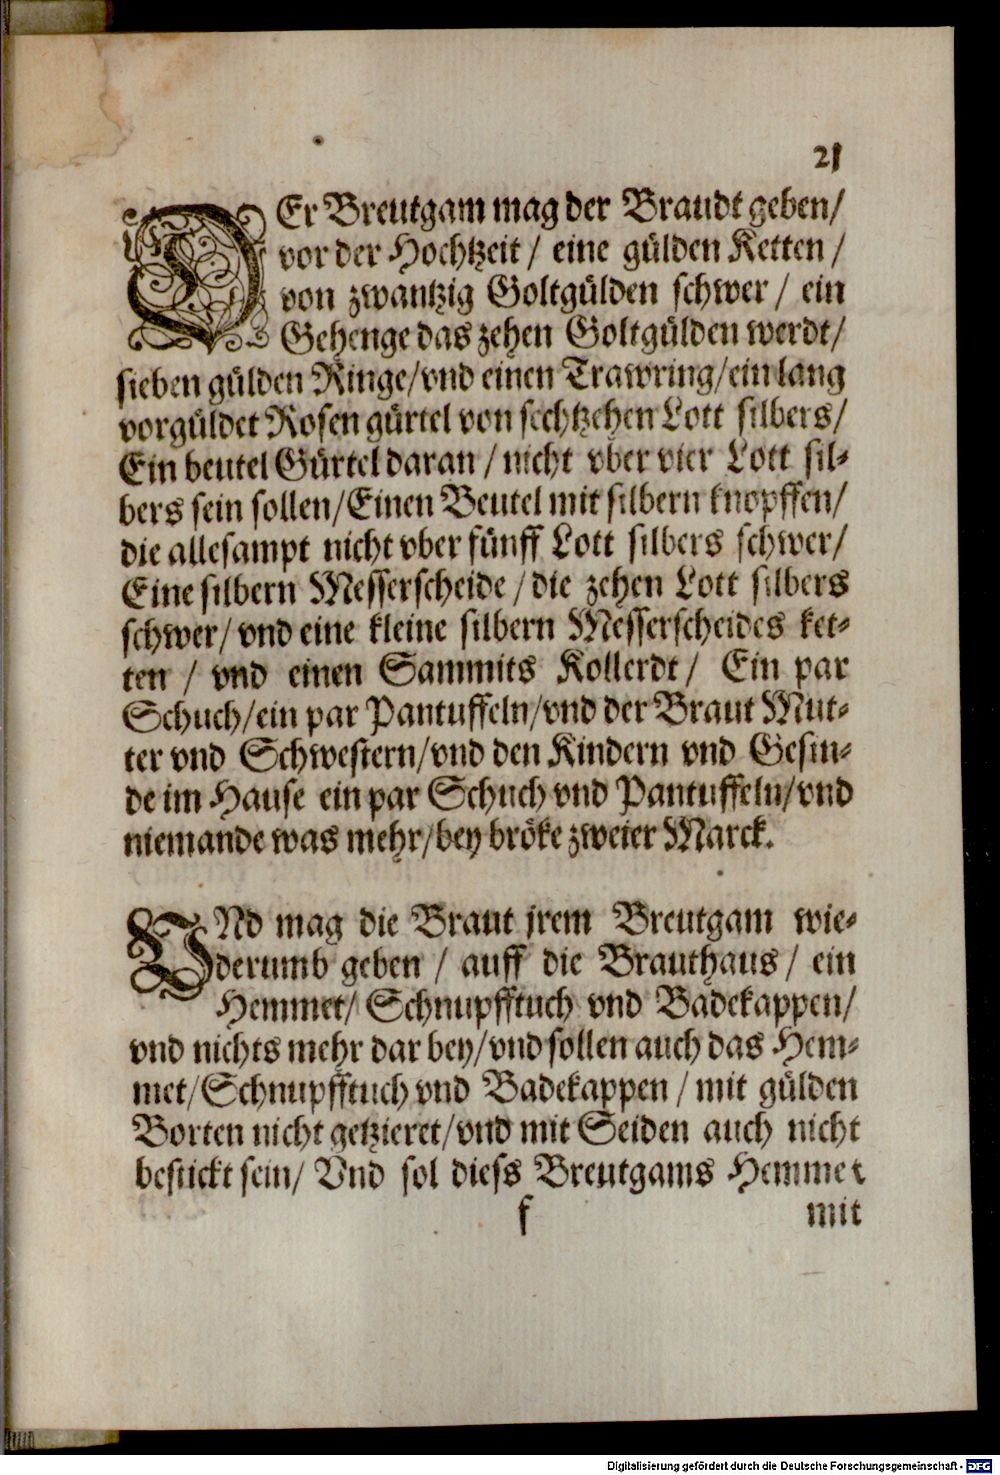 21
DEr Breutgam mag der Braudt geben/
vor der Hochtzeit / eine gülden Ketten /
von zwantzig Goltgülden schwer / ein
Gehenge das zehen Goltgülden werdt/
sieben gülden Ringe/vnd einen Trawring/ein lang
vorgüldet Rosen gürtel von sechtzehen Lott silbers/
Ein beutel Gürtel daran / nicht vber vier Lott sil-
bers sein sollen/Einen Beutel mit silbern knopffen/
die allesampt nicht vber fünff Lott silbers schwer/
Eine silbern Messerscheide / die zehen Lott silbers
schwer/ vnd eine kleine silbern Messerscheides ket-
ten / vnd einen Sammits Kollerdt/ Ein par
Schuch/ein par Pantuffeln/vnd der Braut Mut-
ter vnd Schwestern/vnd den Kindern vnd Gesin-
de im Hause ein par Schuch vnd Pantuffeln/vnd
niemande was mehr/bey bröke zweier Marck.
VNd mag die Braut jrem Breutgam wie-
derumb geben / auff die Brauthaus / ein
Hemmet/ Schnupfftuch vnd Badekappen/
vnd nichts mehr dar bey/vnd sollen auch das Hem-
met/Schnupfftuch vnd Badekappen / mit gülden
Borten nicht getzieret/vnd mit Seiden auch nicht
bestickt sein/ Vnd sol diess Breutgams Hemmet
f mit
Digitalisierung gefördert durch die Deutsche Forschungsgemeinschaft - DFG